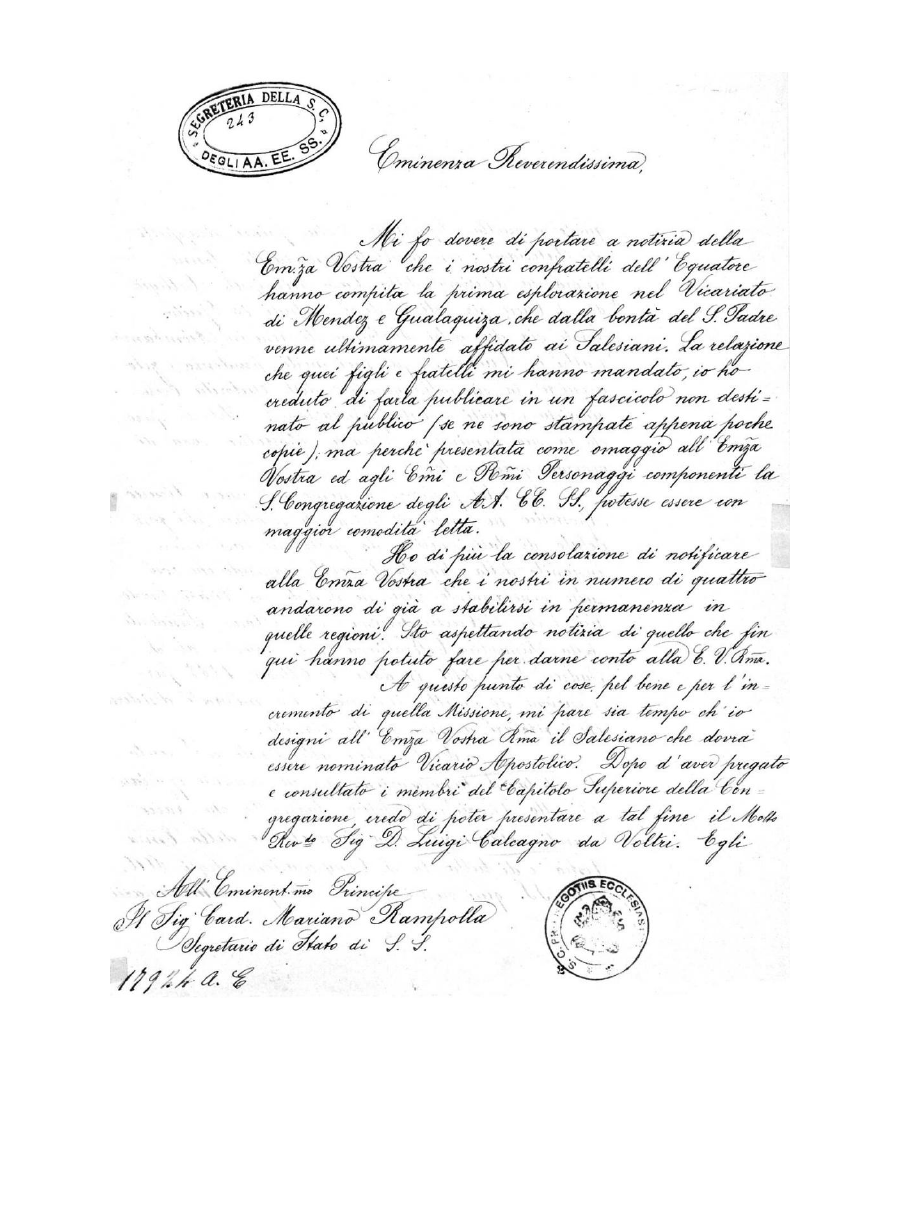 SEGRETERIA DELLA S. C.
243
DEGLI AA. EE. SS.
Eminenza Reverendissima,
Mi fo dovere di portare a notizia della
Em.za Vostra che i nostri confratelli dell' Equatore
hanno compita la prima esplorazione nel Vicariato
di Mendez e Gualaquiza, che dalla bontà del S. Padre
venne ultimamente affidato ai Salesiani. La relazione
che quei figli e fratelli mi hanno mandato, io ho
creduto di farla publicare in un fascicolo non desti=
nato al publico (se ne sono stampate appena poche
copie), ma perchè presentata come omaggio all' Emza
Vostra ed agli Emi e Rmi Personaggi componenti la
S. Congregazione degli A.A. EE. SS., potesse essere con
maggior comodità letta.
Ho di più la consolazione di notificare
alla Emza Vostra che i nostri in numero di quattro
andarono di già a stabilirsi in permanenza in
quelle regioni. Sto aspettando notizia di quello che fin
qui hanno potuto fare per darne conto alla E. V. Rma.
A questo punto di cose, pel bene e per l' in=
cremento di quella Missione, mi pare sia tempo ch' io
designi all' Emza Vostra Rma il Salesiano che dovrà
essere nominato Vicario Apostolico. Dopo d' aver pregato
e consultato i membri del Capitolo Superiore della Con=
gregazione, credo di poter presentare a tal fine il Molto
Revdo Sig. D. Luigi Calcagno da Voltri. Egli
All' Eminent.mo Principe
Il Sig. Card. Mariano Rampolla
Segretario di Stato di S. S.
S. C. PRO NEGOTIIS ECCLESIAST
A. E